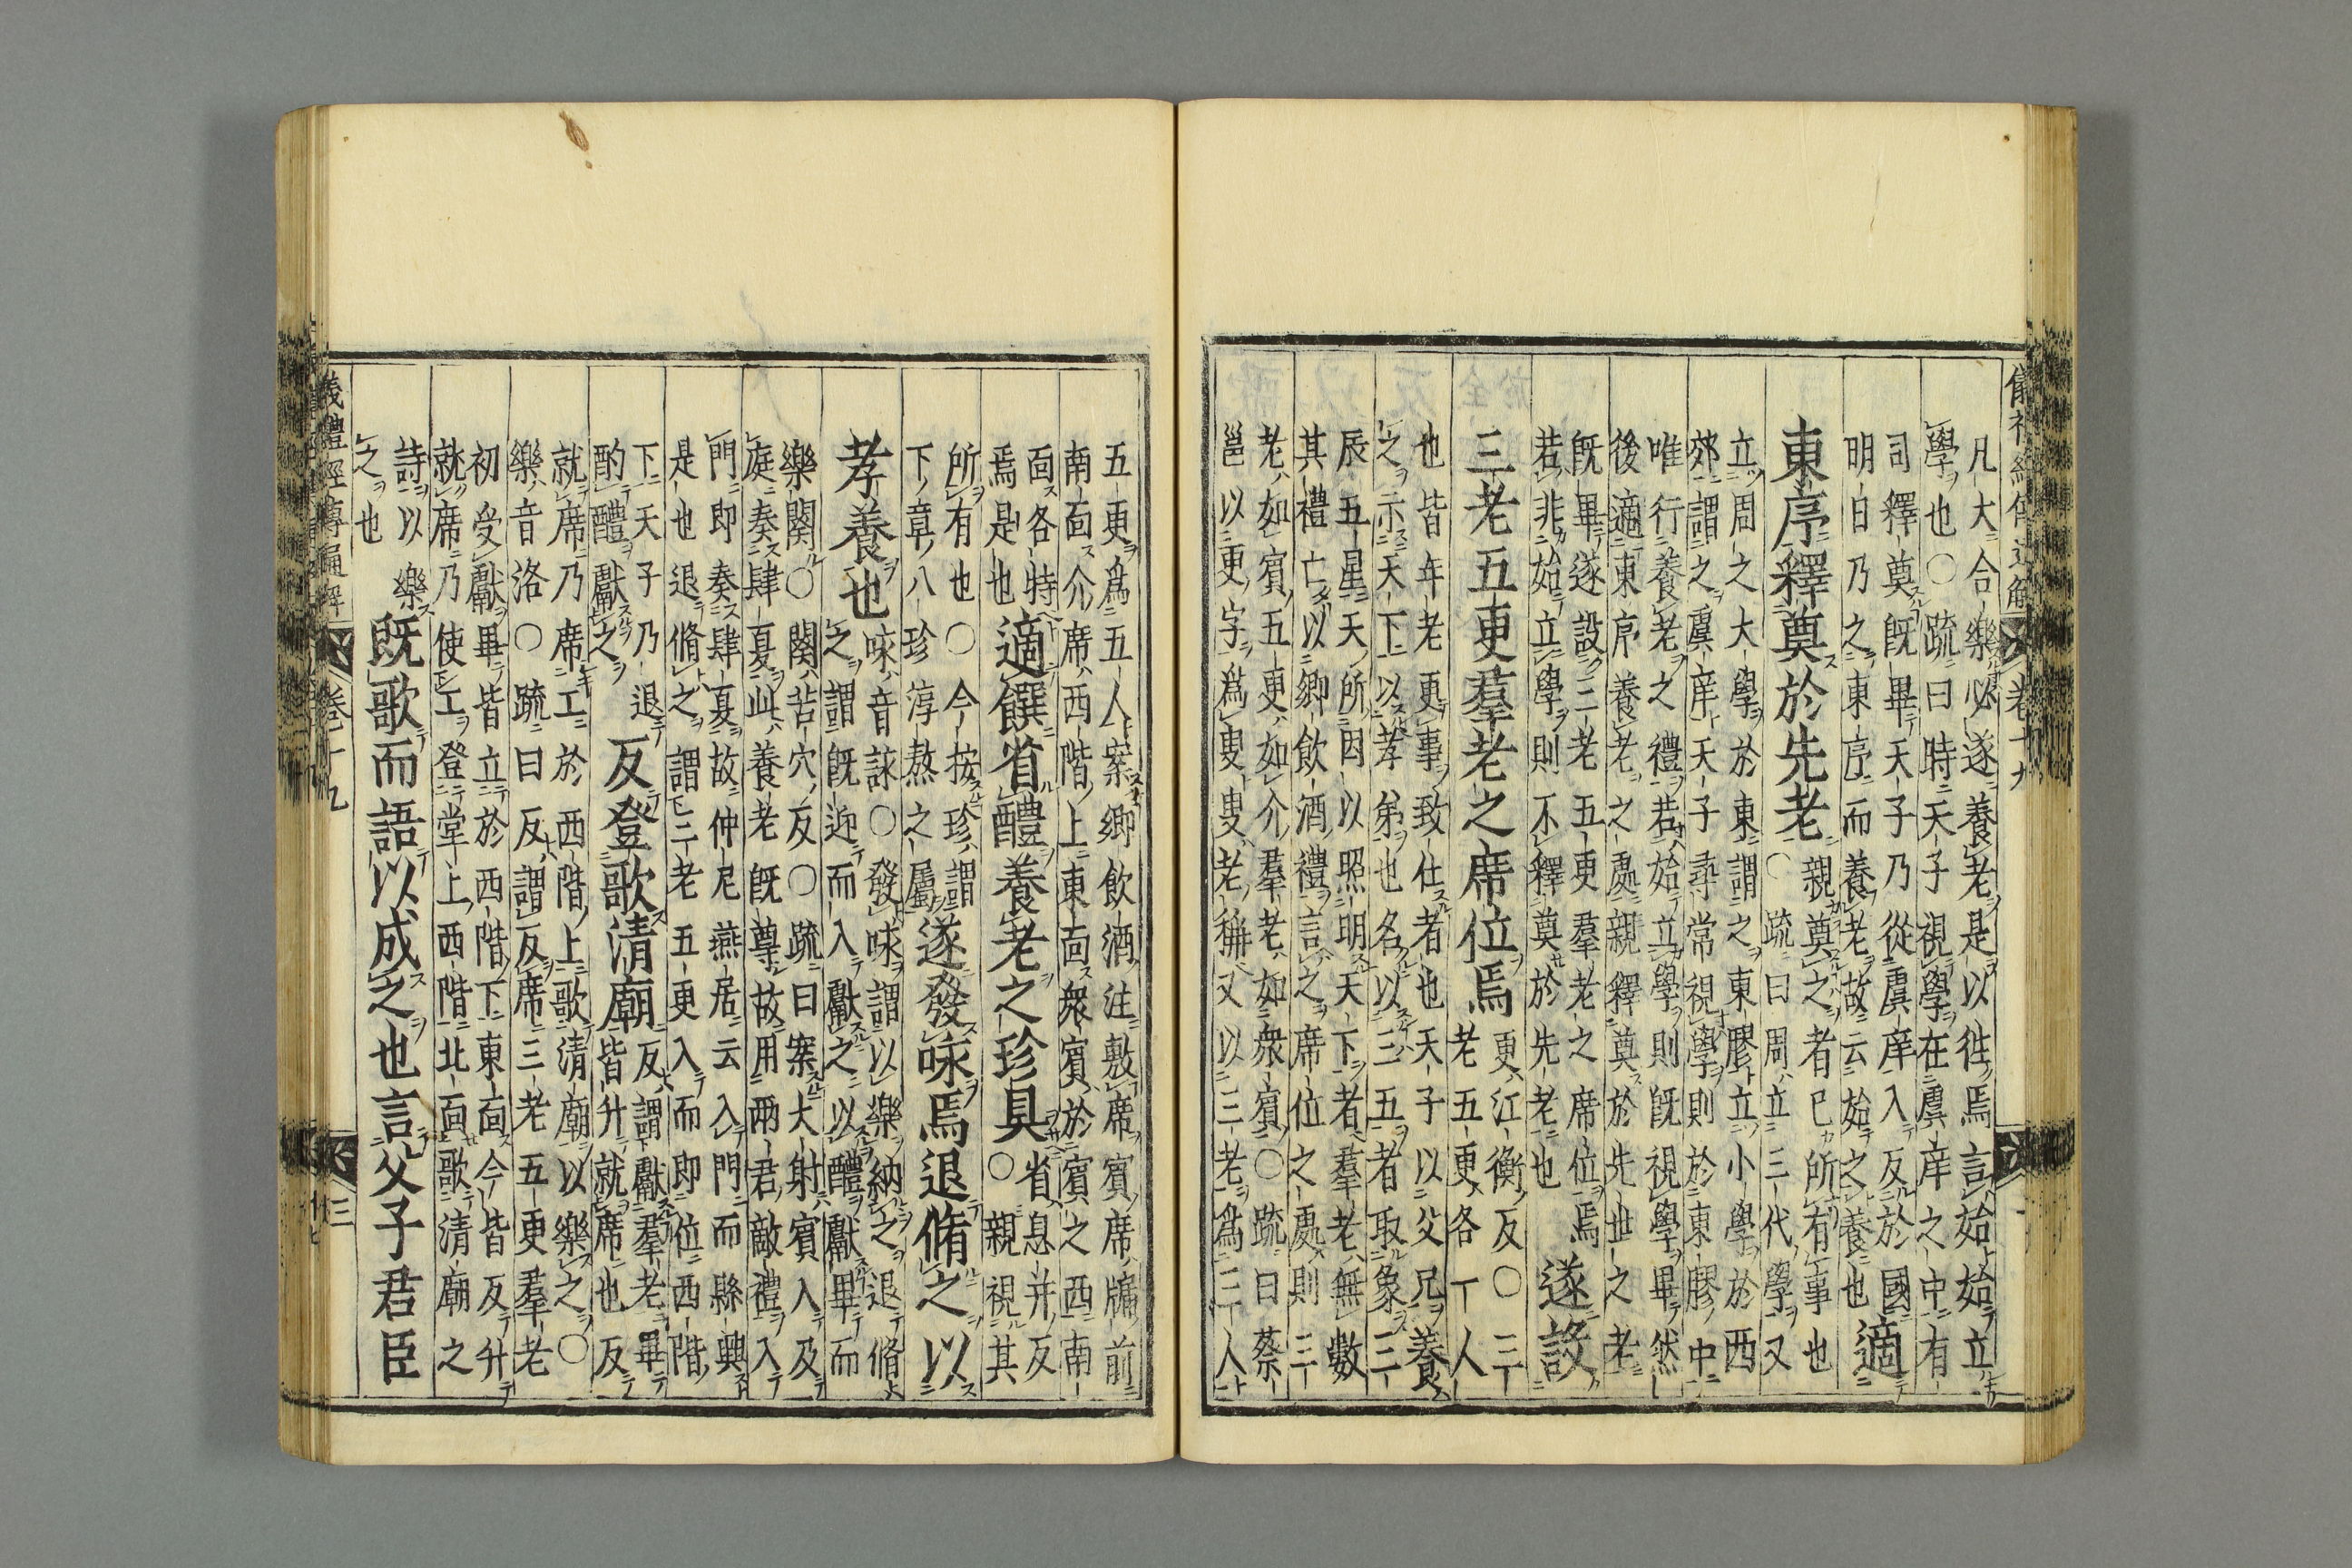 儀禮經傳通解 卷十九
凡大合樂必遂養老是以往焉言始始立
學也〇疏曰時天子視學在虞庠之中有
司釋奠既畢天子乃從虞庠入反於國
明日乃之東序而養老故云始之養也
適東序釋奠於先老
親奠之者已所有事也
〇疏曰周立三代學又
立周之大學於東謂之東膠立小學於西
郊謂之虞庠天子尋常視學則於東膠中
唯行養老之禮若始立學則既視學畢然
後適東序養老之處親釋奠於先世之老
既畢遂設三老五更羣老之席位焉
若非始立學則不釋奠於先老也
遂設三老五更羣老之席位焉
更江衡反〇三
老五更各一人
也皆年老更事致仕者也天子以父兄養
之示天下以孝弟也名以三五者取象三
辰五星天所因以照明天下者羣老無數
其禮亡以鄉飲酒禮言之席位之處則三
老如賓五更如介羣老如衆賓〇疏曰蔡
邕以更字爲叟叟老稱又以三老爲三人
五更爲五人案鄉飲酒注敷席賓席牖前
南面介席西階上東面衆賓於賓之西南
面各特
焉是也
適饌省醴養老之珍具
省息井反
〇親視其
所有也〇今按珍謂
下章八珍淳熬之屬
遂發咏焉退脩之以孝養也
咏音詠〇發咏謂以樂納之退脩
之謂既迎而入獻之以醴獻畢而
樂闋〇闋苦穴反〇疏曰案大射賓入及
庭奏肆夏此養老既尊故用兩君敵禮入
門即奏肆夏故仲尼燕居云入門而縣興
是也退脩之謂三老五更入而即位西階
下天子乃
酌醴獻之
退反登歌清廟
反謂獻羣老畢
皆升就席也反
就席乃席工於西階上歌清廟以樂之〇
樂音洛〇疏曰反謂反席三老五更羣老
初受獻畢皆立於西階下東面今皆反升
就席乃使工登堂上西階北面歌清廟之
詩以樂
之也
既歌而語以成之也言父子君臣
儀禮經傳通解 卷十九 三